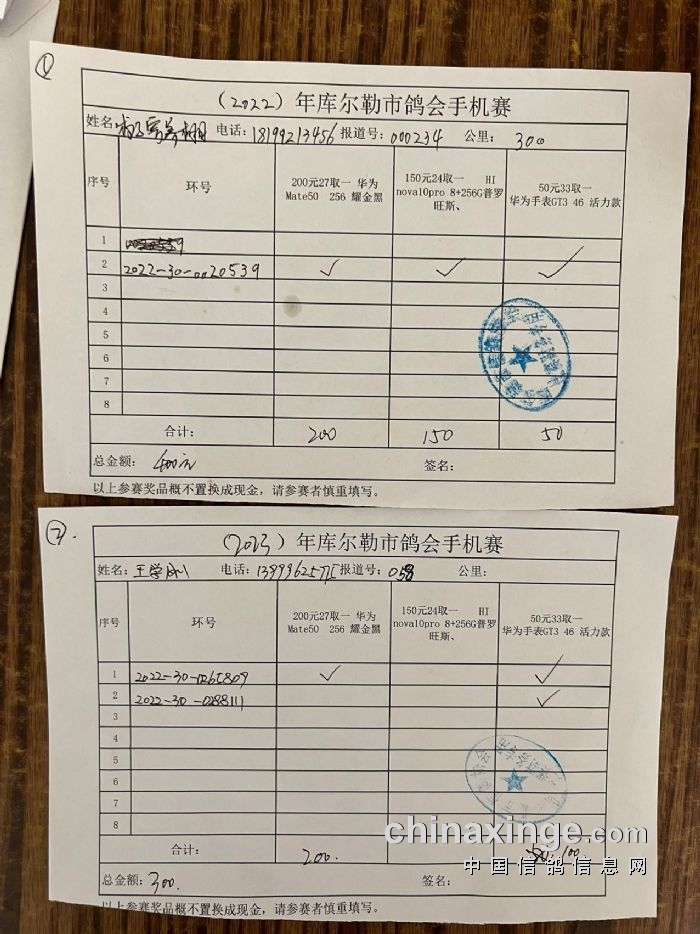 ①
（2022）年库尔勒市鸽会手机赛
姓名: 电话: 18199213456 报道号: 000234 公里: 300
序号 环号 200元27取一 华为Mate50 256 耀金黑 150元24取一 HI nova10pro 8+256G普罗旺斯、 50元33取一 华为手表GT3 46 活力款
1
2 2022-30-0020539 ✓ ✓ ✓
3
4
5
6
7
8
合计: 200 150 50
总金额: 400元 签名:
以上参赛奖品概不置换成现金，请参赛者慎重填写。
②.
（2023）年库尔勒市鸽会手机赛
姓名: 王学 电话: 报道号: 058 公里:
序号 环号 200元27取一 华为Mate50 256 耀金黑 150元24取一 HI nova10pro 8+256G普罗旺斯、 50元33取一 华为手表GT3 46 活力款
1 2022-30-0265809 ✓ ✓
2 2022-30-0288111 ✓
3
4
5
6
7
8
合计: 200. 100
总金额: 300. 签名:
以上参赛奖品概不置换成现金，请参赛者慎重填写。
chinaxinge.com
中国信鸽信息网